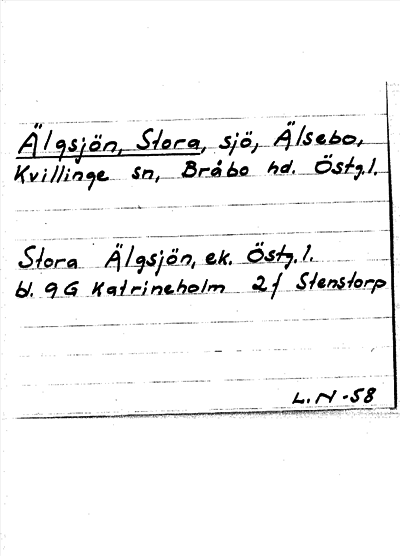 Älgsjön, Stora, sjö, Älsebo,
Kvillinge sn, Bråbo hd. Östg.l.
Stora Älgsjön, ek. Östg.l.
bl. 9G Katrineholm 2f Stenstorp
L.N -58